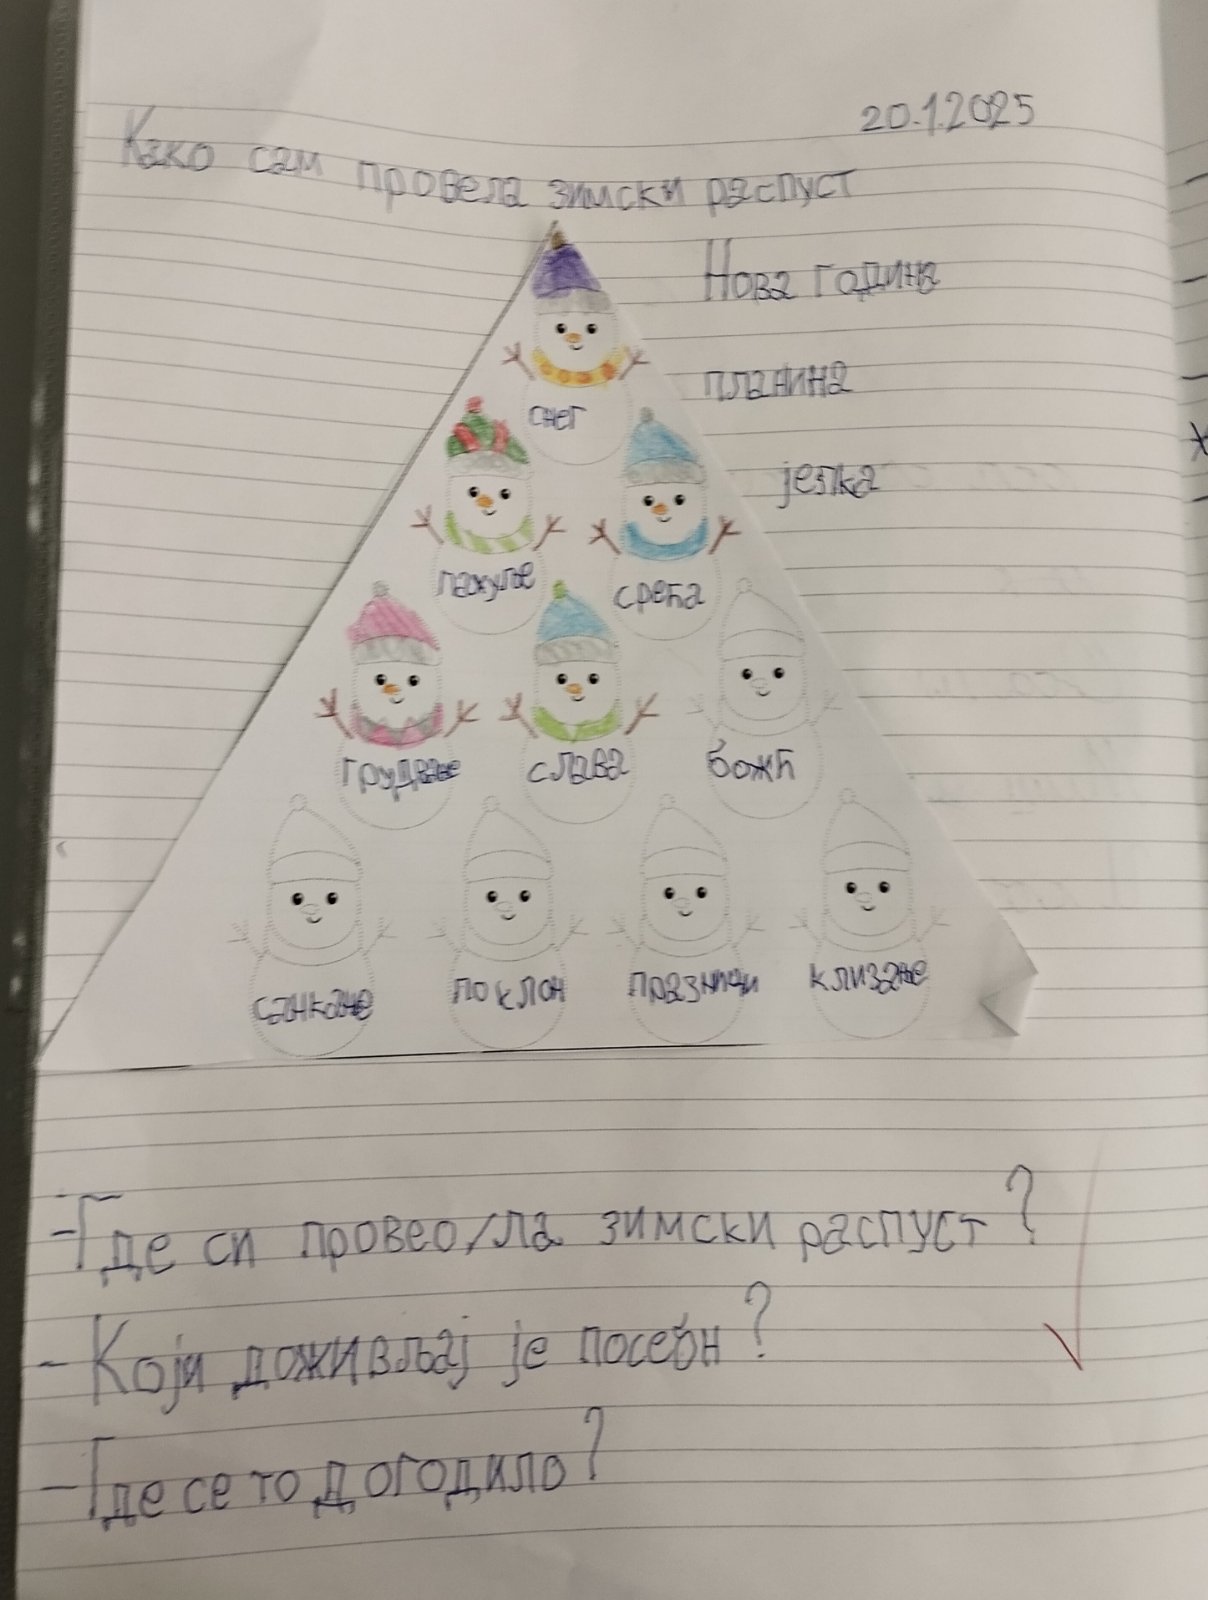 20.1.2025
Како сам провела зимски распуст
Нова година
планина
јелка
снег
пахуље
срећа
грудвање
слава
божћ
санкање
поклон
празници
клизање
- Где си провео/ла зимски распуст?
- Који доживљај је посебн?
- Где се то догодило?